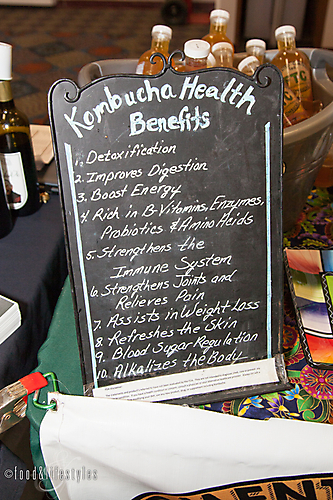 Kombucha Health
Benefits
1. Detoxification
2. Improves Digestion
3. Boost Energy
4. Rich in B-Vitamins, Enzymes,
Probiotics & Amino Acids
5. Strengthens the
Immune System
6. Strengthens Joints and
Relieves Pain
7. Assists in Weight Loss
8. Refreshes the Skin
9. Blood Sugar Regulation
10. Alkalizes the Body
©food&lifestyles